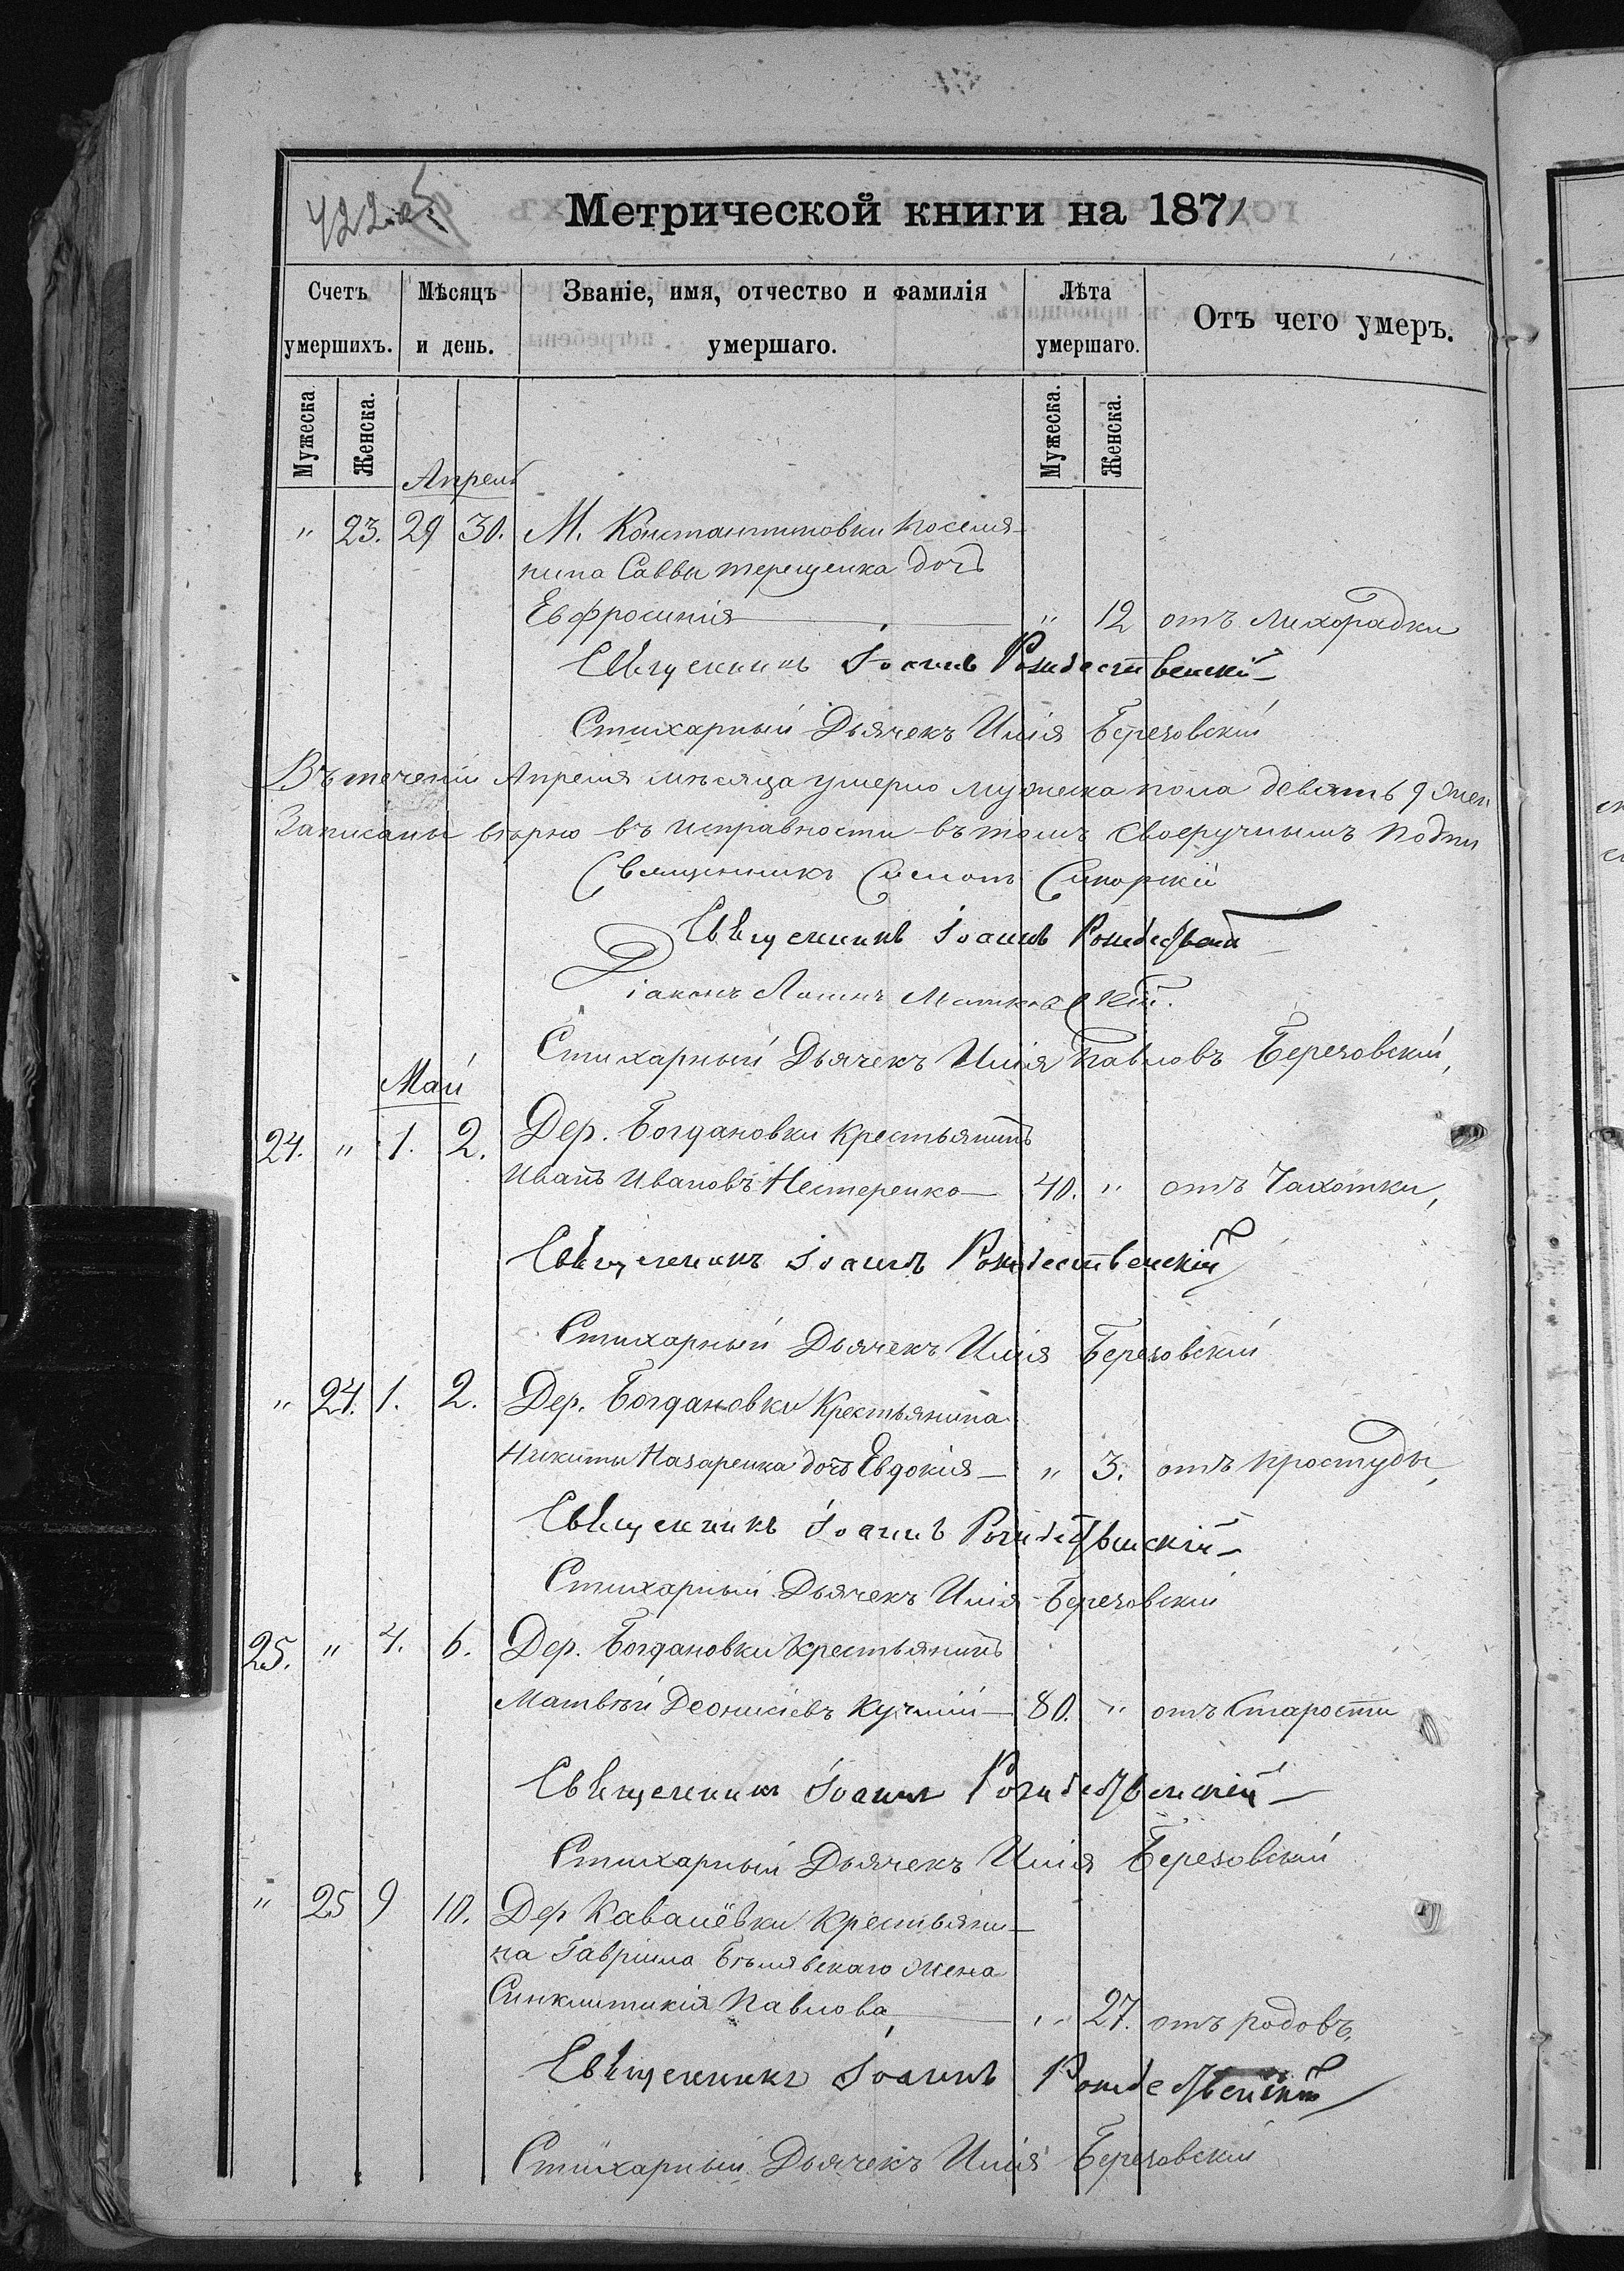 422 об
Метрической книги на 1871
Счетъ умершихъ.
Мѣсяцъ и день.
Званіе, имя, отчество и фамилія умершаго.
Лѣта умершаго.
Отъ чего умеръ.
Мужеска
Женска.
Мужеска.
Женска.
Апрель
" 23. 29 30. М. Константиновки поселя-
нина Саввы терещенка дочь
Евфросинія " 12 отъ лихорадки
Священникъ Іоаннъ Рождественскій
Стихарный Дьячекъ Илія Березовскій
Въ теченіи Апреля мѣсяца умерло мужеска пола девять 9 жен
Записаны вѣрно въ исправности въ томъ своеручнымъ подпи
Священникъ Сикорскій
Священникъ Іоаннъ Рождественс
Діаконъ
Стихарный Дьячекъ Илія Павловъ Березовскій,
Май
24. " 1. 2. Дер. Богдановки крестьянинъ
Иванъ Ивановъ Нестеренко 40. " отъ Чахотки,
Священникъ Іоаннъ Рождественскій
Стихарный Дьячекъ Илія Березовскій
" 24. 1. 2. Дер. Богдановки Крестьянина
Никиты Назаренка дочь Евдокія " 3. отъ простуды,
Священникъ Іоаннъ Рождественскій
Стихарный Дьячекъ Илія Березовскій
25. " 4. 6. Дер. Богдановки Крестьянинъ
Матвѣй Деонисіевъ Кучмій 80. " отъ Старости
Священникъ Іоаннъ Рождественскій
Стихарный Дьячекъ Илія Березовскій
" 25 9 10. Дер Кавалёвки Крестьяни-
на Гавріила Бѣлявскаго жена
Синклитикія Павлова, " 27. отъ родовъ.
Священникъ Іоаннъ Рождественскій
Стихарный Дьячекъ Илія Березовскій